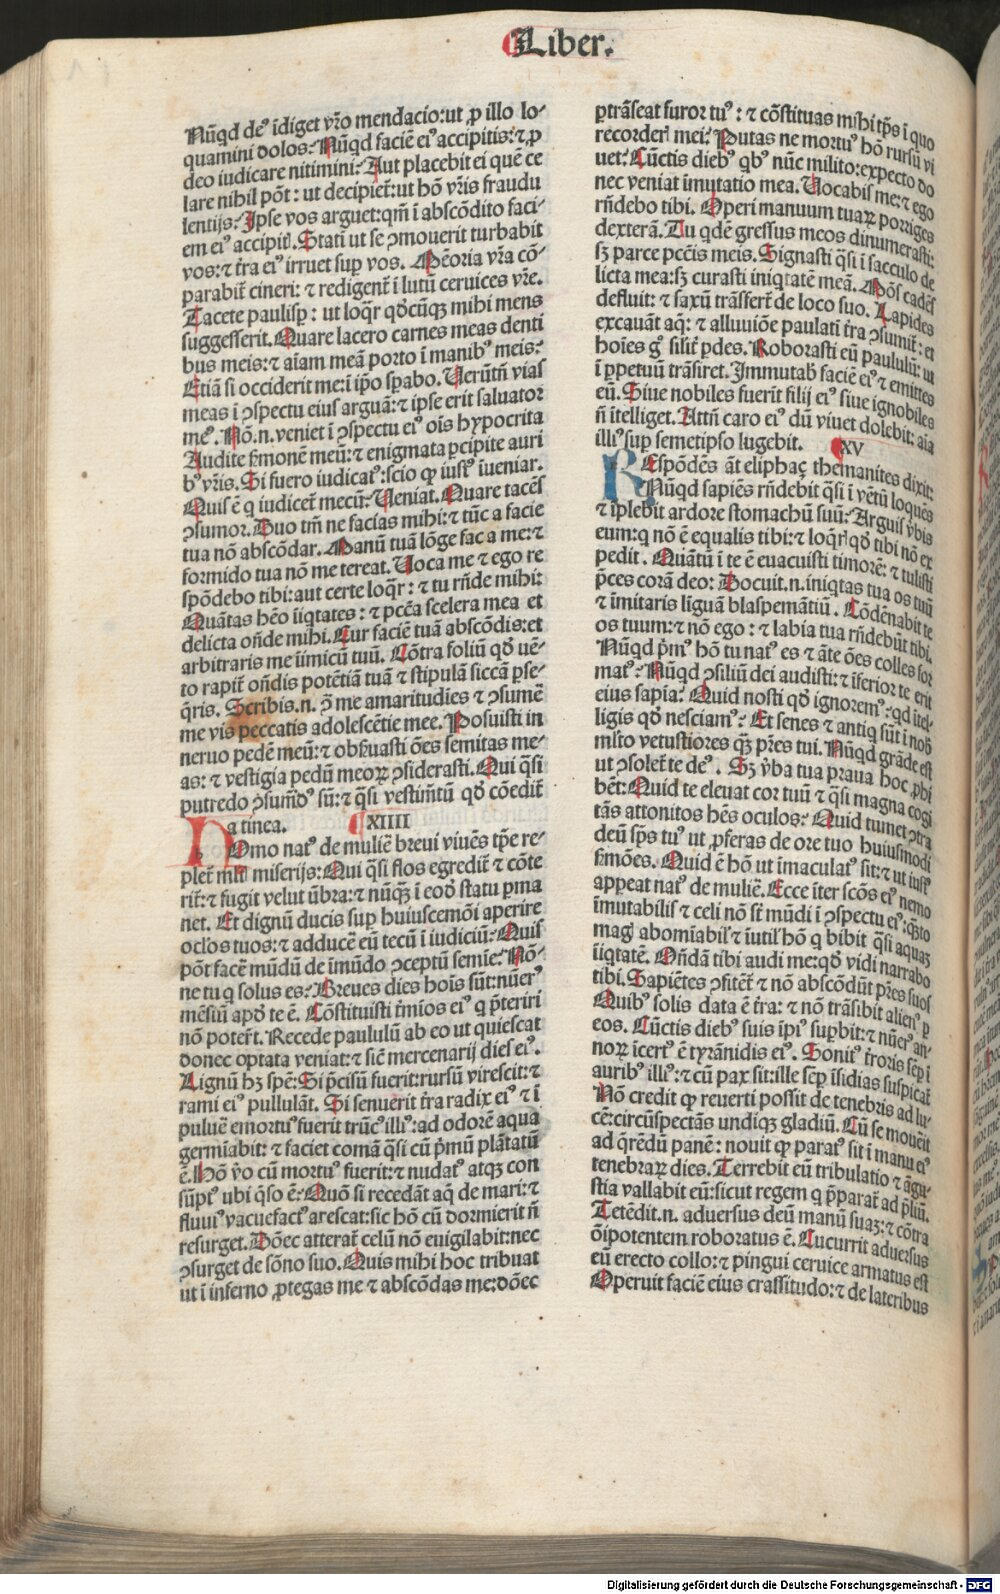 Liber.
Nũqd deꝰ ĩdiget vr̃o mendacio:ut ꝓ illo lo⸗
quamini dolos? Nũqd faciẽ eiꝰ accipitis:⁊ ꝓ
deo iudicare nitimini? Aut placebit ei quẽ ce
lare nihil põt : ut decipiet̃:ut hõ vr̃is fraudu
lentijs? Ipse vos arguet:qm̃ ĩ abscõdito faci⸗
em eiꝰ accipit̃. Statĩ ut se ꝯmouerit turbabit
vos:⁊ t̃ra eiꝰ irruet suꝑ vos. Mẽoria vr̃a cõ⸗
parabit̃ cineri: ⁊ redigent̃ ĩ lutũ ceruices vr̃e.
Tacete paulisꝑ : ut loqr̃ qõcũqꝫ mihi mens
suggesserit. Quare lacero carnes meas denti
bus meis:⁊ aĩam meã porto ĩ manibꝰ meis?
Etiã si occiderit me:ĩ ip̃o sꝑabo. Uerũtñ vias
meas ĩ ꝯspectu eius arguã:⁊ ipse erit saluator
meꝰ. Nõ.n. veniet ĩ ꝯspectu eiꝰ ois hypocrita
Audite ẜmonẽ meũ:⁊ enigmata ꝑcipite auri
bꝰ vr̃is. Si fuero iudicatꝰ:scio ꝙ iustꝰ iueniar.
Quis ẽ q iudicet̃ mecũ? Ueniat. Quare tacẽs
ꝯsumor. Duo tm̃ ne facias mihi:⁊ tũc a facie
tua nõ abscõdar. Manũ tuã lõge fac a me:⁊
formido tua nõ me terreat. Uoca me ⁊ ego re
spõdebo tibi:aut certe loqr̃ : ⁊ tu rñde mihi:
Quãtas hẽo ĩiqtates : ⁊ pcc̃a scelera mea et
delicta oñde mihi. Cur faciẽ tuã abscõdis:et
arbitraris me ĩimicũ tuũ. Cõtra foliũ qõ uẽ⸗
to rapit̃ oñdis potẽtiã tuã ⁊ stipulã siccã ꝑse⸗
q̃ris. Scribis.n. ↄ̃ me amaritudies ⁊ ꝯsumẽ
me vis peccatis adolescẽtie mee. Posuisti in
neruo pedẽ meũ:⁊ obẜuasti ões semitas me⸗
as: ⁊ vestigia pedũ meoꝝ ꝯsiderasti. Qui qsi
putredo ꝯsumẽdꝰ sũ:⁊ qsi vestimẽtũ qõ cõedit̃
a tinea. XIIII
HOmo natꝰ de muliẽ breui viuẽs tp̃e re⸗
plet̃ ml̃tꝰ miserijs:Qui qsi flos egredit̃ ⁊ cõte
rit̃:⁊ fugit velut ũbra:⁊ nũqꝫ ĩ eod̃ statu ꝑma
net. Et dignũ ducis suꝑ huiuscemõi aperire
oclos tuos:⁊ adducẽ eũ tecũ ĩ iudiciũ? Quis
põt facẽ mũdũ de ĩmũdo ꝯceptũ semĩe? Nõ⸗
ne tu q solus es? Breues dies hoĩs sũt:nũerꝰ
mẽsiũ apõ te ẽ. Cõstituisti t̃mĩos eiꝰ q p̃teriri
nõ poter̃t. Recede paululũ ab eo ut quiescat
donec optata veniat:⁊ sic̃ mercenarij dies eiꝰ.
Lignũ hꝫ spẽ:Si p̃cisũ fuerit:rursũ virescit:⁊
rami eiꝰ pullulãt. Si senuerit t̃ra radix eiꝰ ⁊ ĩ
puluẽ emortuꝰ fuerit trũcꝰ illiꝰ:ad odorẽ aqua
germĩabit: ⁊ faciet comã qsi cũ pᷓmũ plãtatũ
ẽ. Hõ ṽo cũ mortuꝰ fuerit:⁊ nudatꝰ atqꝫ con
sũptꝰ ubi qso ẽ? Quõ si recedãt aq̃ de mari:⁊
fluuiꝰ vacuefactꝰ arescat:sic hõ cũ dormierit ñ
resurget. Dõec atterat̃ celũ nõ euigilabit:nec
ꝯsurget de sõno suo. Quis mihi hoc tribuat
ut ĩ inferno ꝓtegas me ⁊ abscõdas me:dõec
ptrãseat furor tuꝰ : ⁊ cõstituas mihi tp̃s ĩ quo
recorder̃ mei? Putas ne mortuꝰ hõ rursũ vi
uet? Cũctis diebꝰ qbꝰ nũc milito:expecto do
nec veniat ĩmutatio mea. Uocabis me:⁊ ego
rñdebo tibi. Operi manuum tuaꝝ porriges
dexterã. Tu qdẽ gressus meos dinumerasti:
sꝫ parce pcc̃is meis. Signasti qsi ĩ sacculo de
licta mea:sꝫ curasti iniqtatẽ meã. Mõs cadẽs
defluit: ⁊ saxũ trãsfert̃ de loco suo. Lapides
excauãt aq̃: ⁊ alluuiõe paulatĩ t̃ra ꝯsumit̃ : et
hoĩes gͦ silit̃ ꝑdes. Roborasti eũ paululũ: ut
ĩ ꝑpetuũ trãsiret. Immutabꝭ faciẽ eiꝰ ⁊ emittes
eũ. Siue nobiles fuerĩt filij eiꝰ siue ignobiles
ñ ĩtelliget. Attñ caro eiꝰ dũ viuet dolebit: aĩa
illiꝰ suꝑ semetipso lugebit. XV
REspõdẽs ãt eliphaç themanites dixit:
Nũqd sapiẽs rñdebit qsi ĩ vẽtũ loquẽs
⁊ ĩplebit ardore stomachũ suũ? Arguis ṽbis
eum:q nõ ẽ equalis tibi:⁊ loqr̃ꝭ qõ tibi nõ ex
pedit. Quãtũ ĩ te ẽ euacuisti timorẽ: ⁊ tulisti
p̃ces corã deo: Docuit.n. iniqtas tua os tuũ
⁊ ĩmitaris lĩguã blaspemãtiũ . Cõdẽnabit te
os tuum:⁊ nõ ego : ⁊ labia tua rñdebũt tibi.
Nũqd pᷓmꝰ hõ tu natꝰ es ⁊ ãte ões colles for
matꝰ? Nũqd ꝯsiliũ dei audisti:⁊ ĩferior te erit
eius sapĩa? Quid nosti qõ ignoremꝰ?qd ĩtel⸗
ligis qõ nesciamꝰ? Et senes ⁊ antiq sũt ĩ nob̃
ml̃to vetustiores qꝫ pr̃es tui. Nũqd grãde est
ut ꝯsolet̃ te deꝰ . Sꝫ ṽba tua praua hoc ꝓhi
bẽt? Quid te eleuat cor tuũ ⁊ qsi magna cogi
tãs attonitos hẽs oculos? Quid tumet ꝯtra
deũ sp̃s tuꝰ ut ꝓferas de ore tuo huiusmodi
ẜmões. Quid ẽ hõ ut ĩmaculatꝰ sit:⁊ ut iustꝰ
appeat natꝰ de muliẽ. Ecce ĩter scõs eiꝰ nemo
ĩmutabilis ⁊ celi nõ st̃ mũdi ĩ ꝯspectu eiꝰ:qᷓto
magꝭ abomĩabilꝭ ⁊ ĩutilꝭ hõ q bibit qsi aquas
ĩiqtatẽ. Oñdã tibi audi me:qõ vidi narrabo
tibi. Sapiẽtes ꝯfitẽt̃ ⁊ nõ abscõdũt pr̃es suos
Quibꝰ solis data ẽ t̃ra: ⁊ nõ trãsibit alienꝰ ꝑ
eos. Cũctis diebꝰ suis ĩpiꝰ suꝑbit:⁊ nũerꝰ an⸗
noꝝ ĩcert̃ꝰ ẽ tyrãnidis eiꝰ. Sonitꝰ t̃roris sẽꝑ ĩ
auribꝰ illiꝰ:⁊ cũ pax sit:ille sẽꝑ ĩsidias suspicat̃
Nõ credit ꝙ reuerti possit de tenebris ad lu⸗
cẽ:circũspectãs undiqꝫ gladiũ. Cũ se mouẽit
ad q̃rẽdũ panẽ: nouit ꝙ paratꝰ sit ĩ manu eiꝰ
tenebraꝝ dies. Terrebit eũ tribulatio ⁊ ãgu⸗
stia vallabit eũ:sicut regem q p̃parat̃ ad p̃liũ.
Tetẽdit.n. aduersus deũ manũ suaꝫ:⁊ cõtra
õipotentem roboratus ẽ. Cucurrit aduersus
eũ erecto collo:⁊ pingui ceruice armatus est
Operuit faciẽ eius crassitudo:⁊ de lateribus
Digitalisierung gefördert durch die Deutsche Forschungsgemeinschaft - DFG